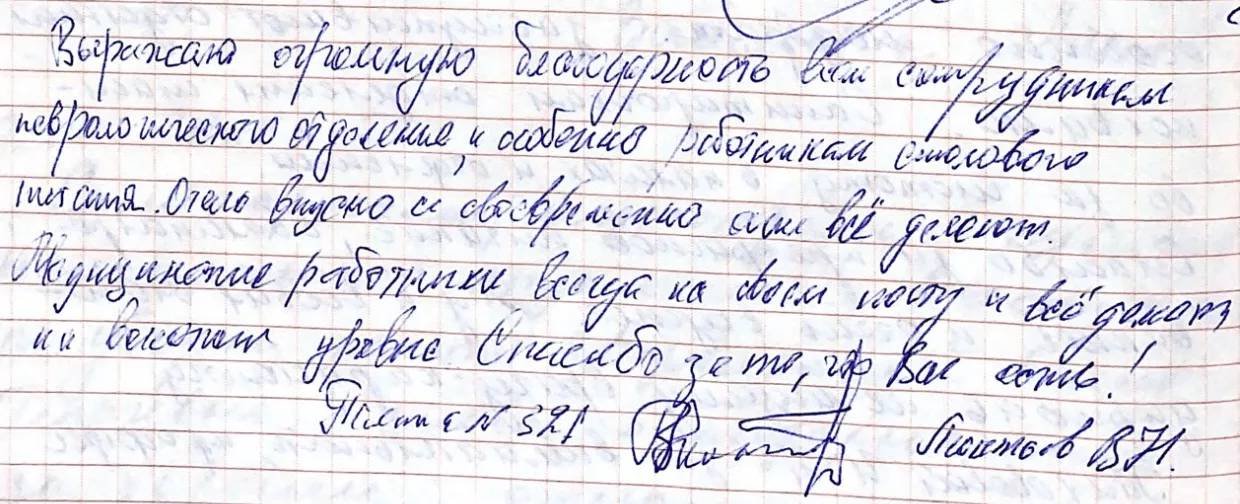 Выражаю огромную благодарность всем сотрудникам
неврологического отделения, и особенно работникам столового
питания. Очень вкусно и своевременно они всё делают.
Медицинские работники всегда на своем посту и всё делают
на высоком уровне. Спасибо за то, что Вы есть!
Палата № 321
В.Н.